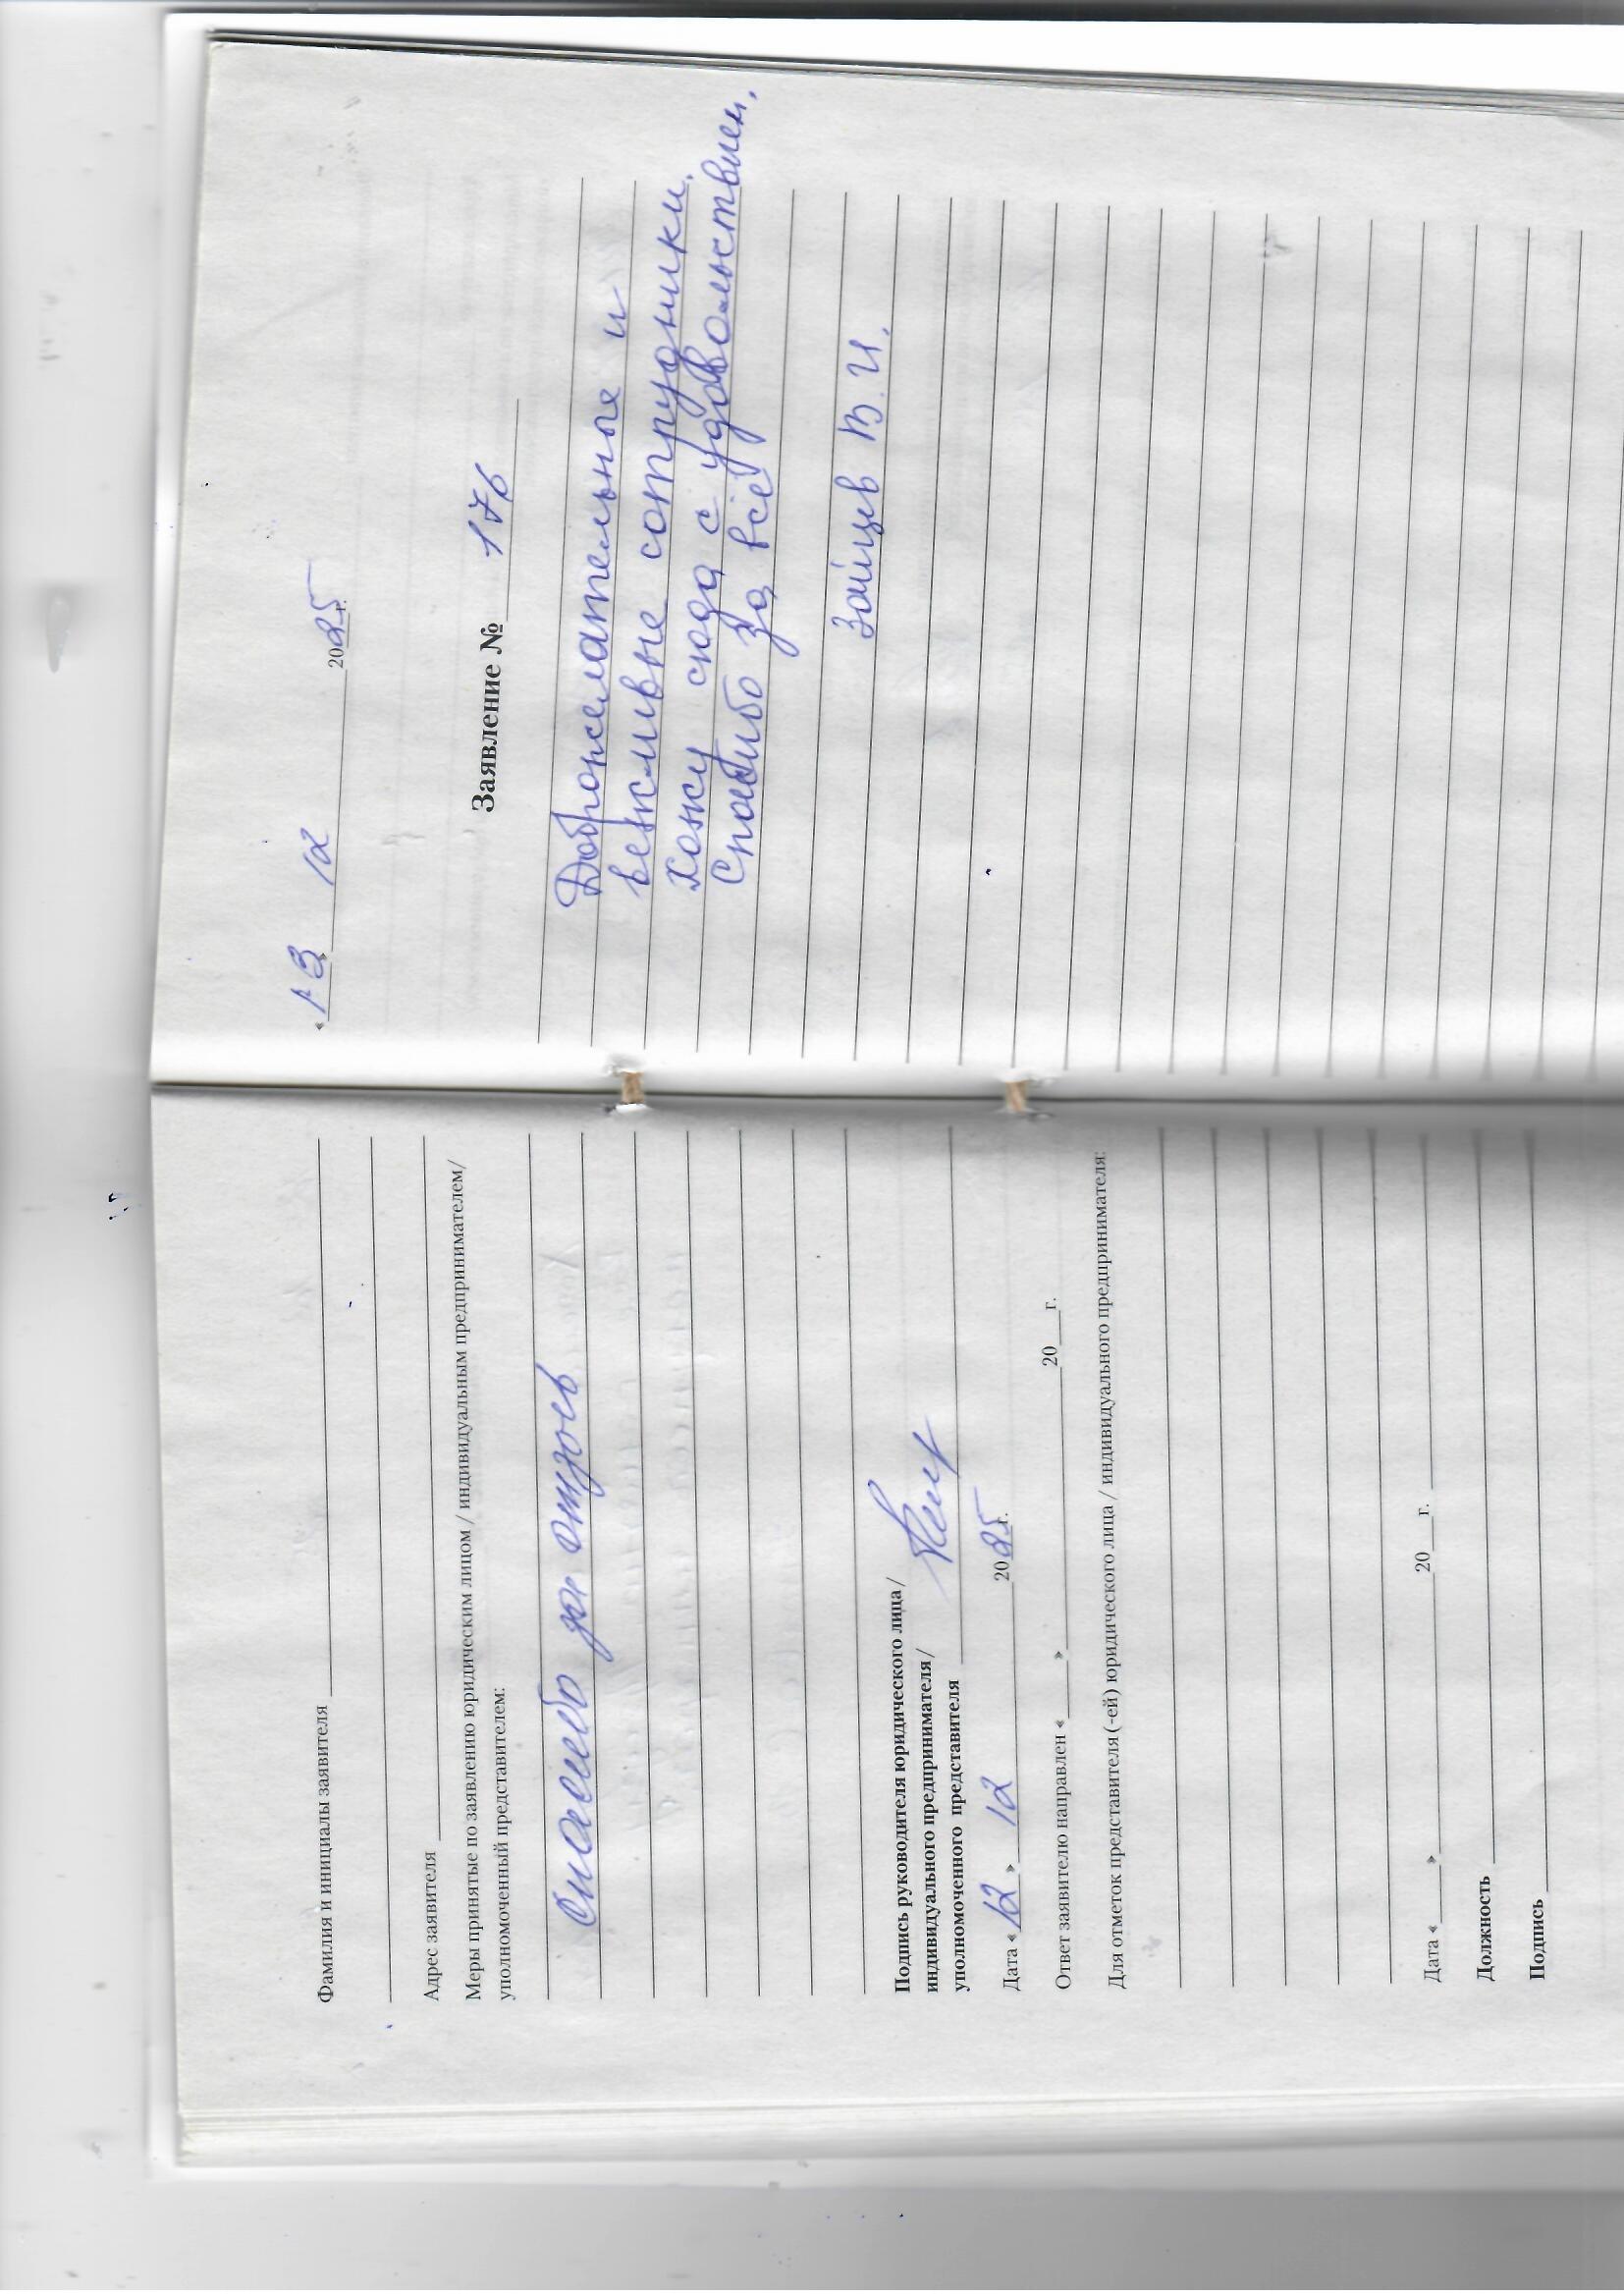 Фамилия и инициалы заявителя
Адрес заявителя
Меры принятые по заявлению юридическим лицом / индивидуальным предпринимателем/
уполномоченный представителем:
Спасибо за отзыв
Подпись руководителя юридического лица/
индивидуального предпринимателя/
уполномоченного представителя
Дата « 12 » 12 2025 г.
Ответ заявителю направлен «___»___20___г.
Для отметок представителя (-ей) юридического лица / индивидуального предпринимателя:
Дата «___»___20___г.
Должность
Подпись
« 13 » 12 2025 г.
Заявление № 176
Доброжелательные и
вежливые сотрудники.
Хожу сюда с удовольствием.
Спасибо за всё
Зайцев В.И.